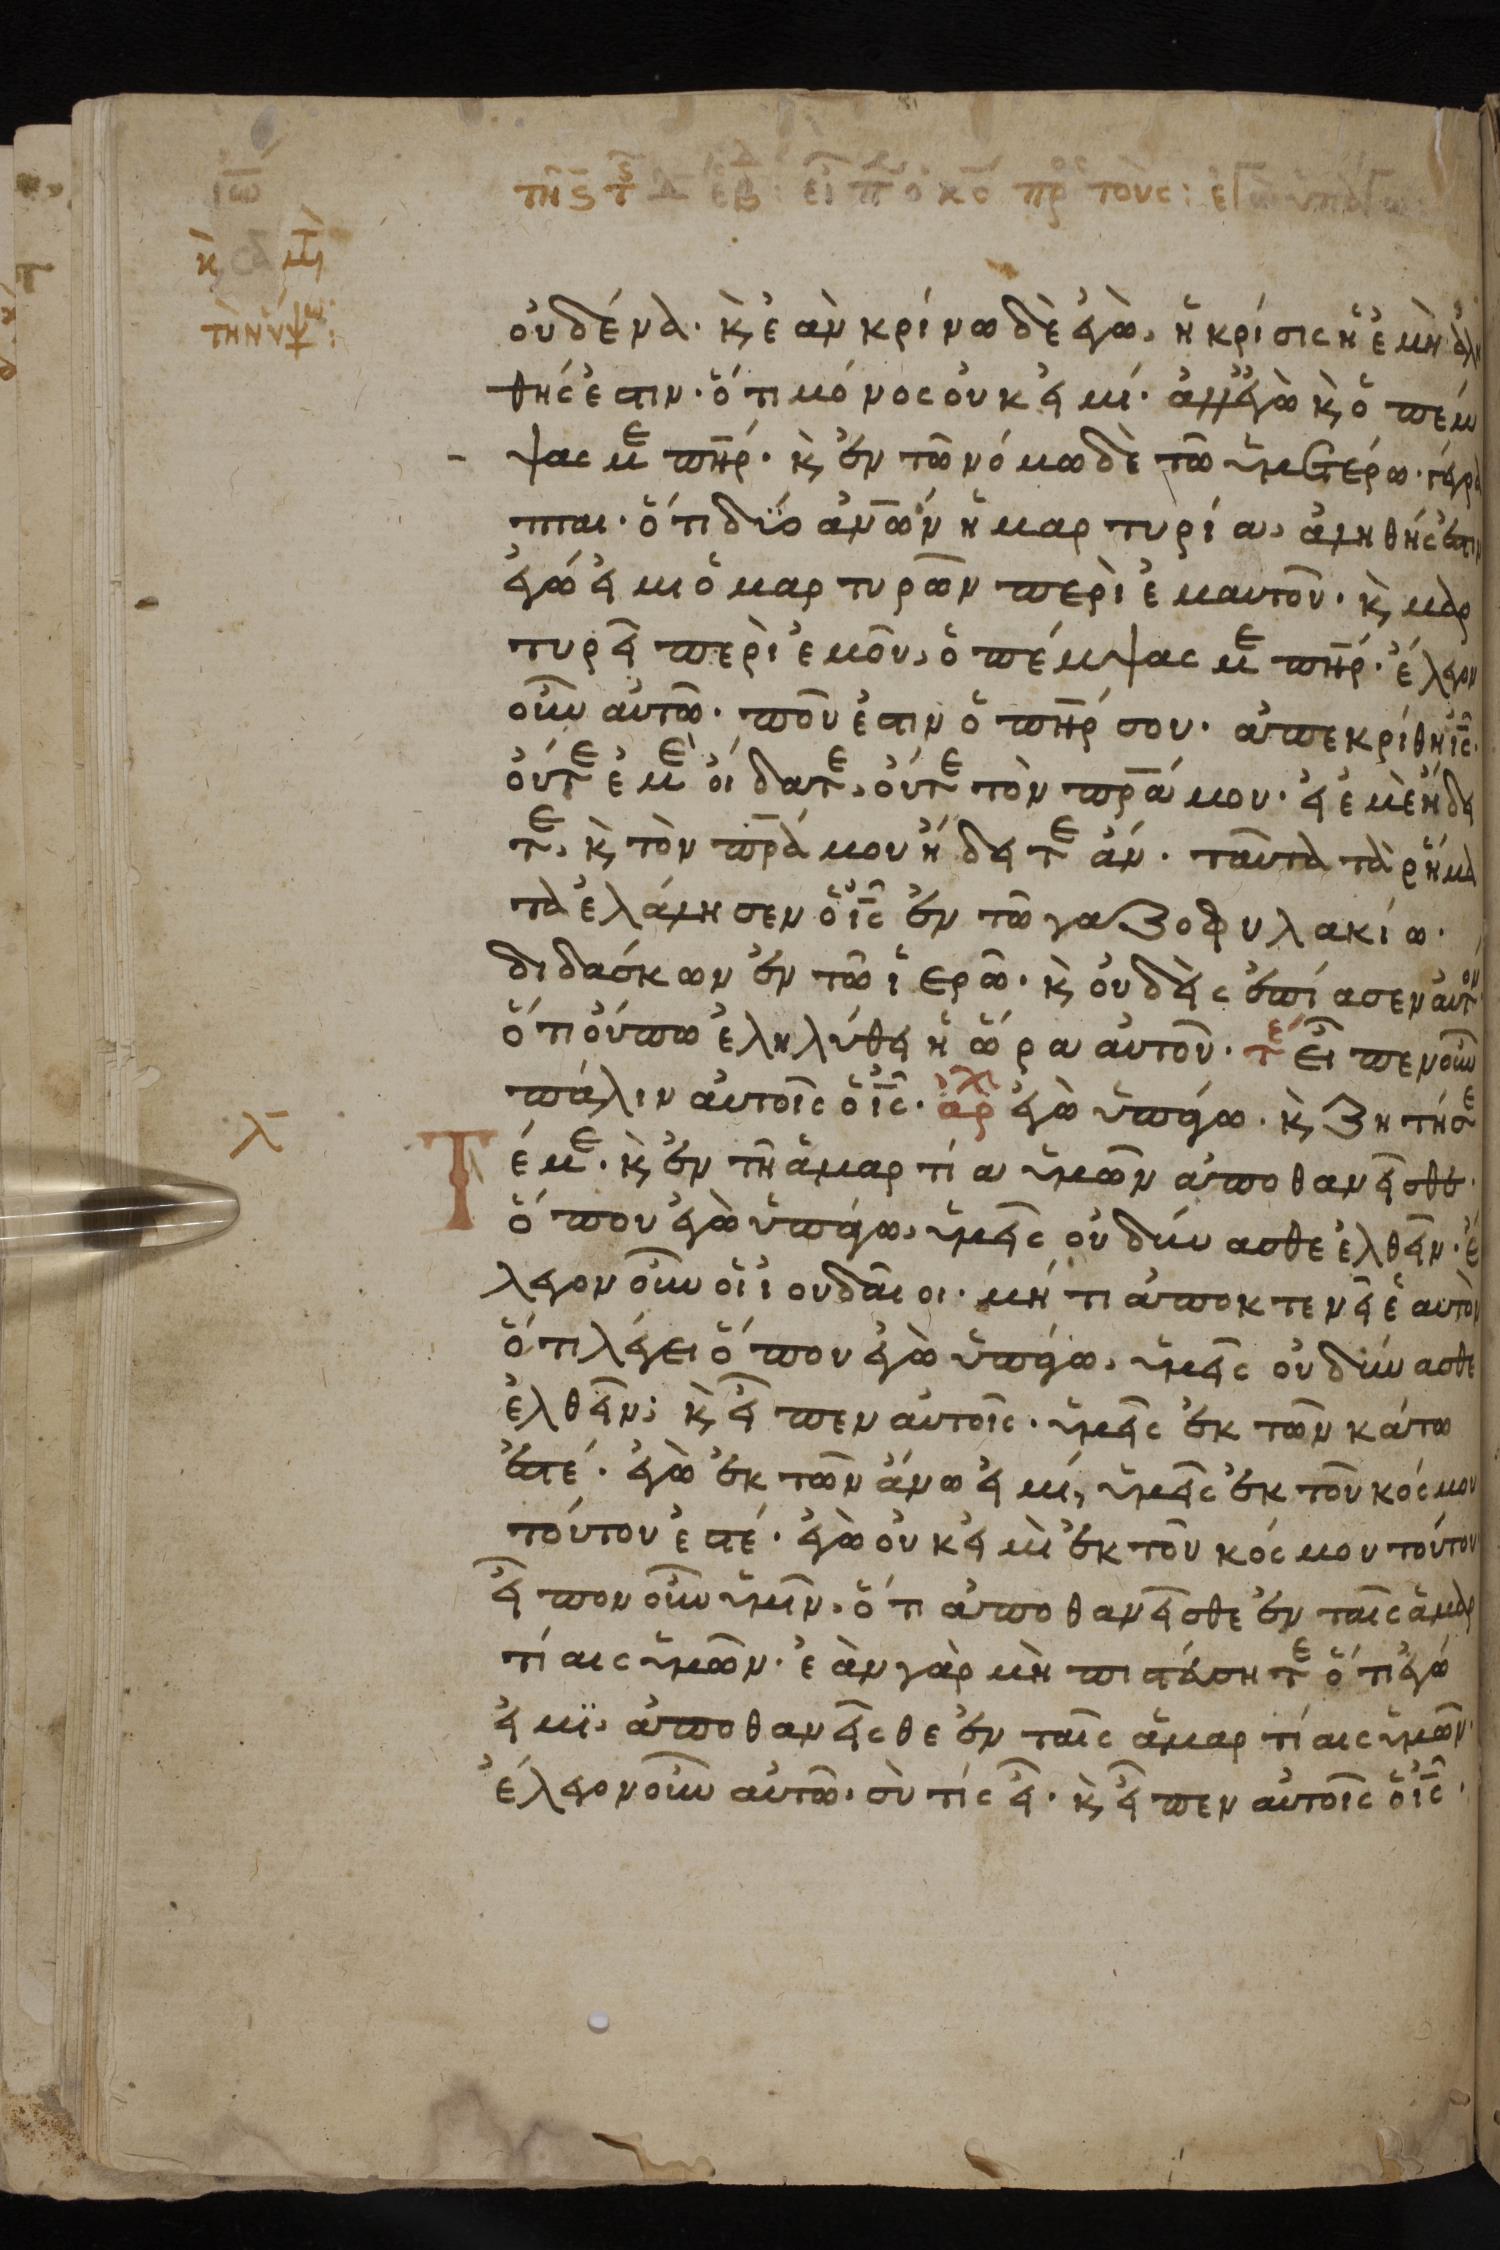 τῆς τ̅ε̅λ̅ ἑβ: εἶπεν ὁ κ̅ς̅ πρὸς τοὺς:
ιω̅
κ̀
τὴν ὑψω:
οὐδένα· κ̀ ἐὰν κρίνω δὲ ἐγὼ, ἡ κρίσις ἡ ἐμὴ ἀλη
θής ἐστιν· ὅτι μόνος οὐκ εἰμί· ἀλλ' ἐγὼ κ̀ ὁ πέμ
ψας με π̅η̅ρ̅· κ̀ ἐν τῶ νόμω δὲ τῶ ὑμετέρω· γέγρα
πται· ὅτι δύο ἀν̅ω̅ν ἡ μαρτυρία, ἀληθής ἐστιν
ἐγώ εἰμι ὁ μαρτυρῶν περὶ ἐμαυτοῦ· κ̀ μαρ
τυρεῖ περὶ ἐμοῦ, ὁ πέμψας με π̅η̅ρ̅· ἔλεγον
οὖν αὐτῶ· ποῦ ἐστιν ὁ π̅η̅ρ̅ σου· ἀπεκρίθη ι̅ς̅·
οὔτε ἐμὲ οἴδατε, οὔτε τὸν π̅ρ̅α̅ μου· εἰ ἐμὲ ἤδει
τε, κ̀ τὸν π̅ρ̅α̅ μου ἤδειτε ἄν· ταῦτα τὰ ῥήμα
τα ἐλάλησεν ὁ ι̅ς̅ ἐν τῶ γαζοφυλακίω·
διδάσκων ἐν τῶ ἱερῶ· κ̀ οὐδεὶς ἐπίασεν αὐτὸν
ὅτι οὔπω ἐληλύθει ἡ ὥρα αὐτοῦ· τε εἶπεν οὖν
πάλιν αὐτοῖς ὁ ι̅ς̅· ἀρχ ἐγὼ ὑπάγω· κ̀ ζητήσε
λ̅
Τέ με· κ̀ ἐν τῆ ἁμαρτία ὑμῶν ἀποθανεῖσθε·
ὅπου ἐγὼ ὑπάγω, ὑμεῖς οὐ δύνασθε ἐλθεῖν· ἔ
λεγον οὖν οἱ ἰουδαῖοι· μή τι ἀποκτενεῖ ἑαυτὸν
ὅτι λέγει ὅπου ἐγὼ ὑπάγω, ὑμεῖς οὐ δύνασθε
ἐλθεῖν; κ̀ εἶπεν αὐτοῖς· ὑμεῖς ἐκ τῶν κάτω
ἐστέ· ἐγὼ ἐκ τῶν ἄνω εἰμί, ὑμεῖς ἐκ τοῦ κόσμου
τούτου ἐστέ· ἐγὼ οὐκ εἰμὶ ἐκ τοῦ κόσμου τούτου
εἶπον οὖν ὑμῖν, ὅτι ἀποθανεῖσθε ἐν ταῖς ἁμαρ
τίαις ὑμῶν· ἐὰν γὰρ μὴ πιστεύσητε ὅτι ἐγώ
εἰμι, ἀποθανεῖσθε ἐν ταῖς ἁμαρτίαις ὑμῶν·
ἔλεγον οὖν αὐτῶ· σὺ τίς εἶ· κ̀ εἶπεν αὐτοῖς ὁ ι̅ς̅·